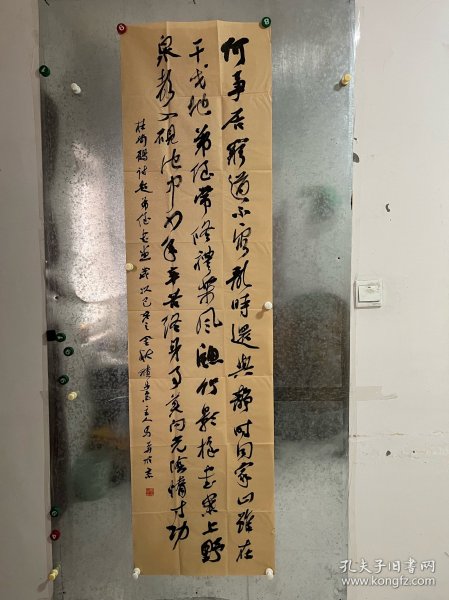 何事居窮道不窮亂時還與靜時同家山雖在
干戈地弟侄常修禮樂風窗竹影搖書案上野
泉聲入硯池中少年辛苦終身事莫向光陰惰寸功
杜荀鶴詩題弟侄書堂歲次己亥金秋
孔夫子旧书网
www.kongfz.com